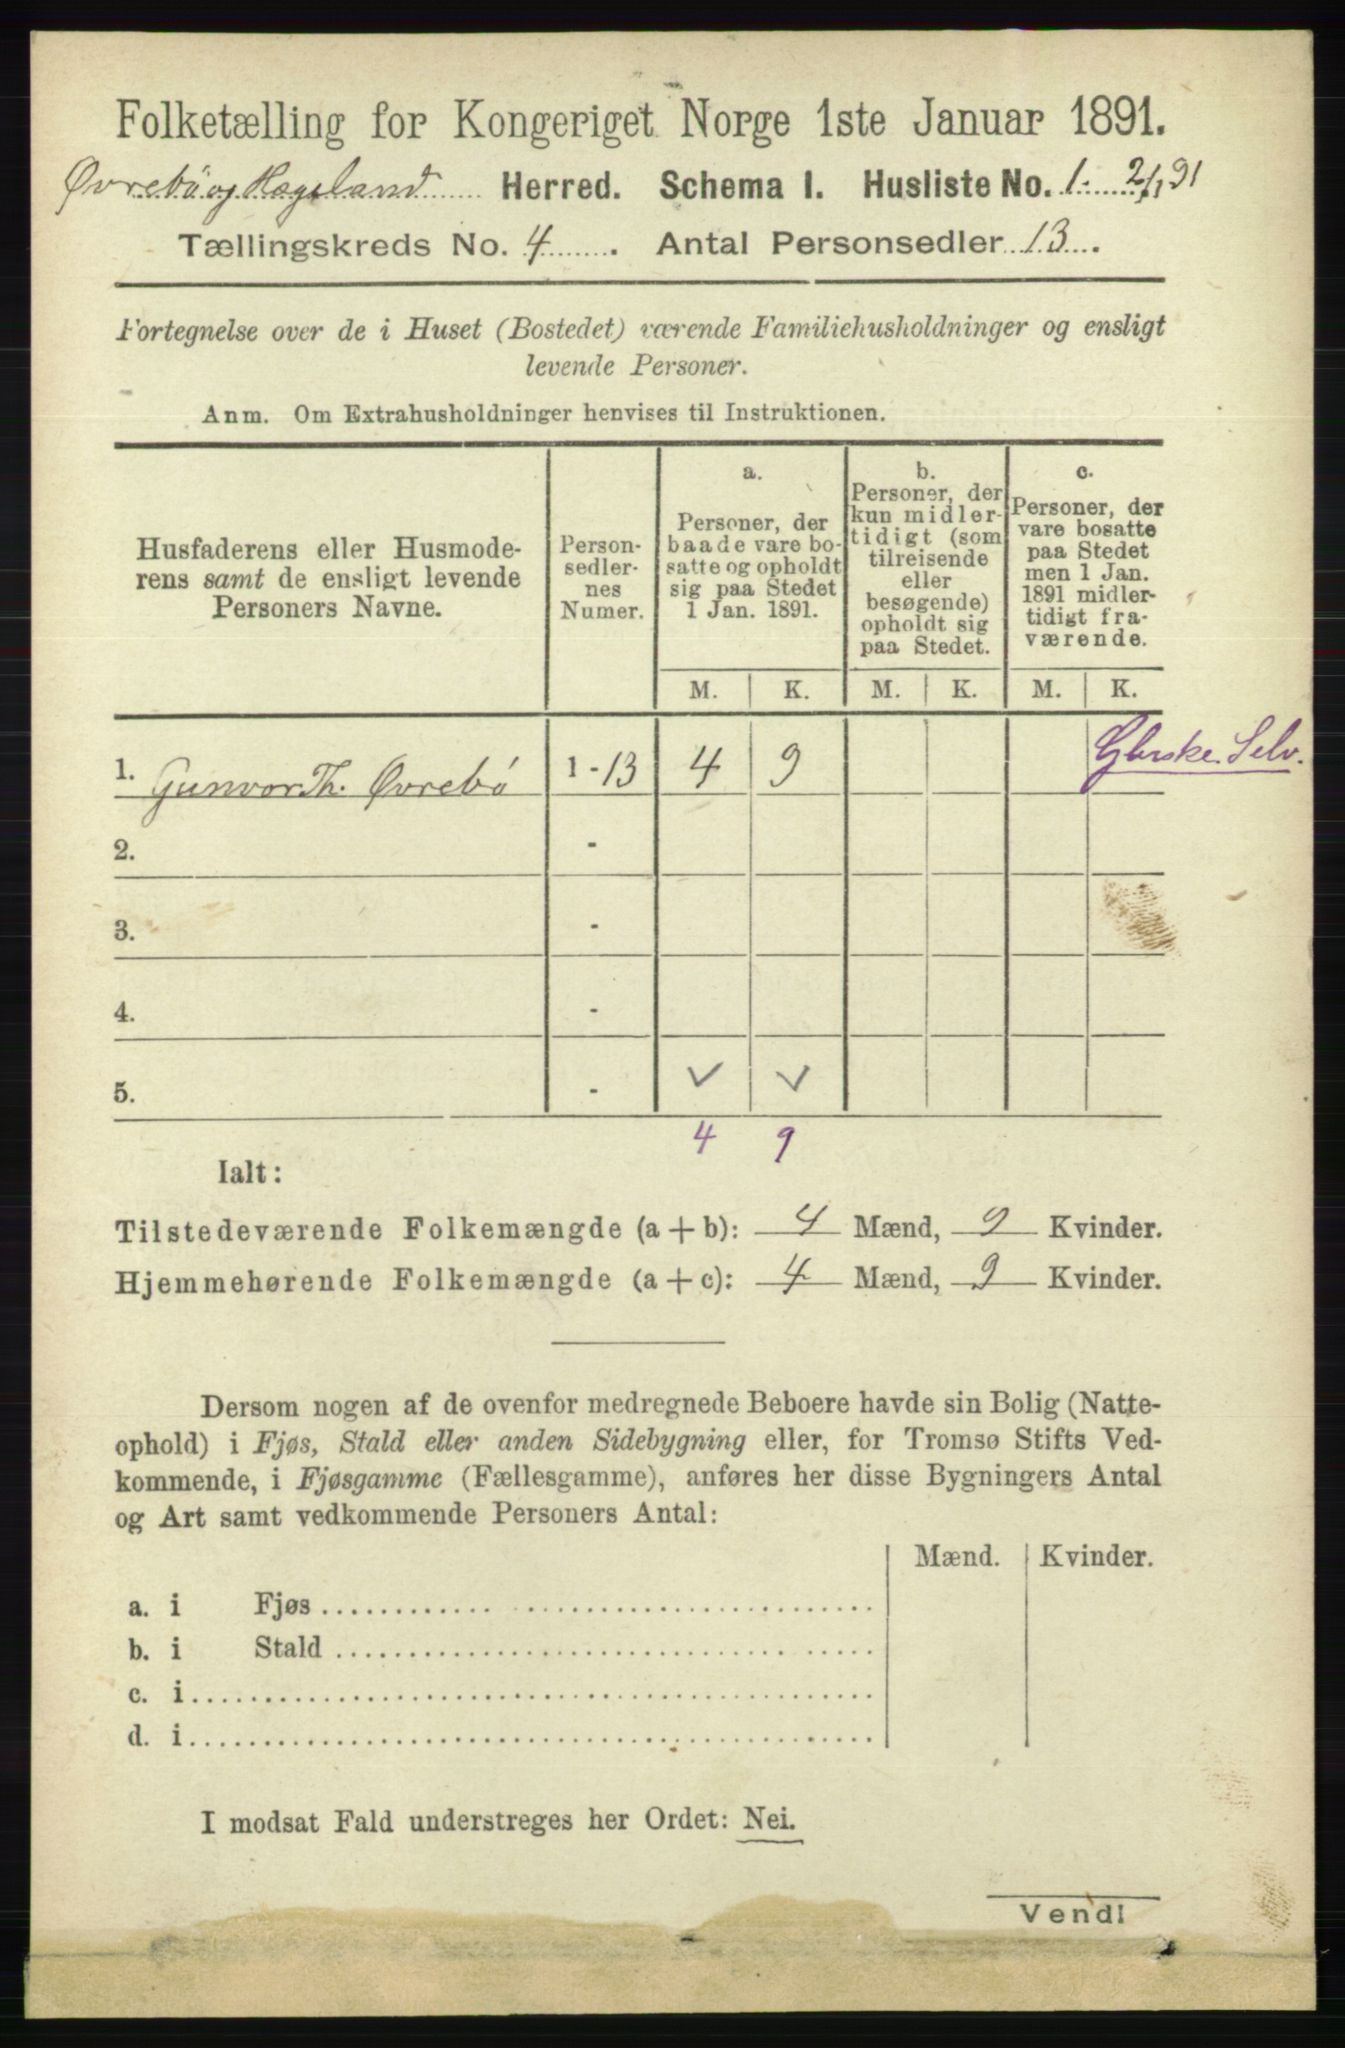 Folketælling for Kongeriget Norge 1ste Januar 1891.
Øvrebö og Hægeland Herred. Schema I. Husliste No. 1. 2/1 91
Tællingskreds No. 4. Antal Personsedler 13.
Fortegnelse over de i Huset (Bostedet) værende Familiehusholdninger og ensligt
levende Personer.
Anm. Om Extrahusholdninger henvises til Instruktionen.
Husfaderens eller Husmode-
rens samt de ensligt levende
Personers Navne.
Person-
sedler-
nes
Numer.
a.
Personer, der
baade vare bo-
satte og opholdt
sig paa Stedet
1 Jan. 1891.
b.
Personer, der
kun midler-
tidigt (som
tilreisende
eller
besøgende)
opholdt sig
paa Stedet.
c.
Personer, der
vare bosatte
paa Stedet
men 1 Jan.
1891 midler-
tidigt fra-
værende.
M. K. M. K. M. K.
1. Gunvor Th. Øvrebö 1-13 4 9 Selv.
2. -
3. -
4. -
5. - ✓ ✓
4 9
Ialt:
Tilstedeværende Folkemængde (a + b): 4 Mænd, 9 Kvinder.
Hjemmehørende Folkemængde (a + c): 4 Mænd, 9 Kvinder.
Dersom nogen af de ovenfor medregnede Beboere havde sin Bolig (Natte-
ophold) i Fjøs, Stald eller anden Sidebygning eller, for Tromsø Stifts Ved-
kommende, i Fjøsgamme (Fællesgamme), anføres her disse Bygningers Antal
og Art samt vedkommende Personers Antal:
Mænd. Kvinder.
a. i Fjøs
b. i Stald
c. i
d. i
I modsat Fald understreges her Ordet: Nei.
Vend!